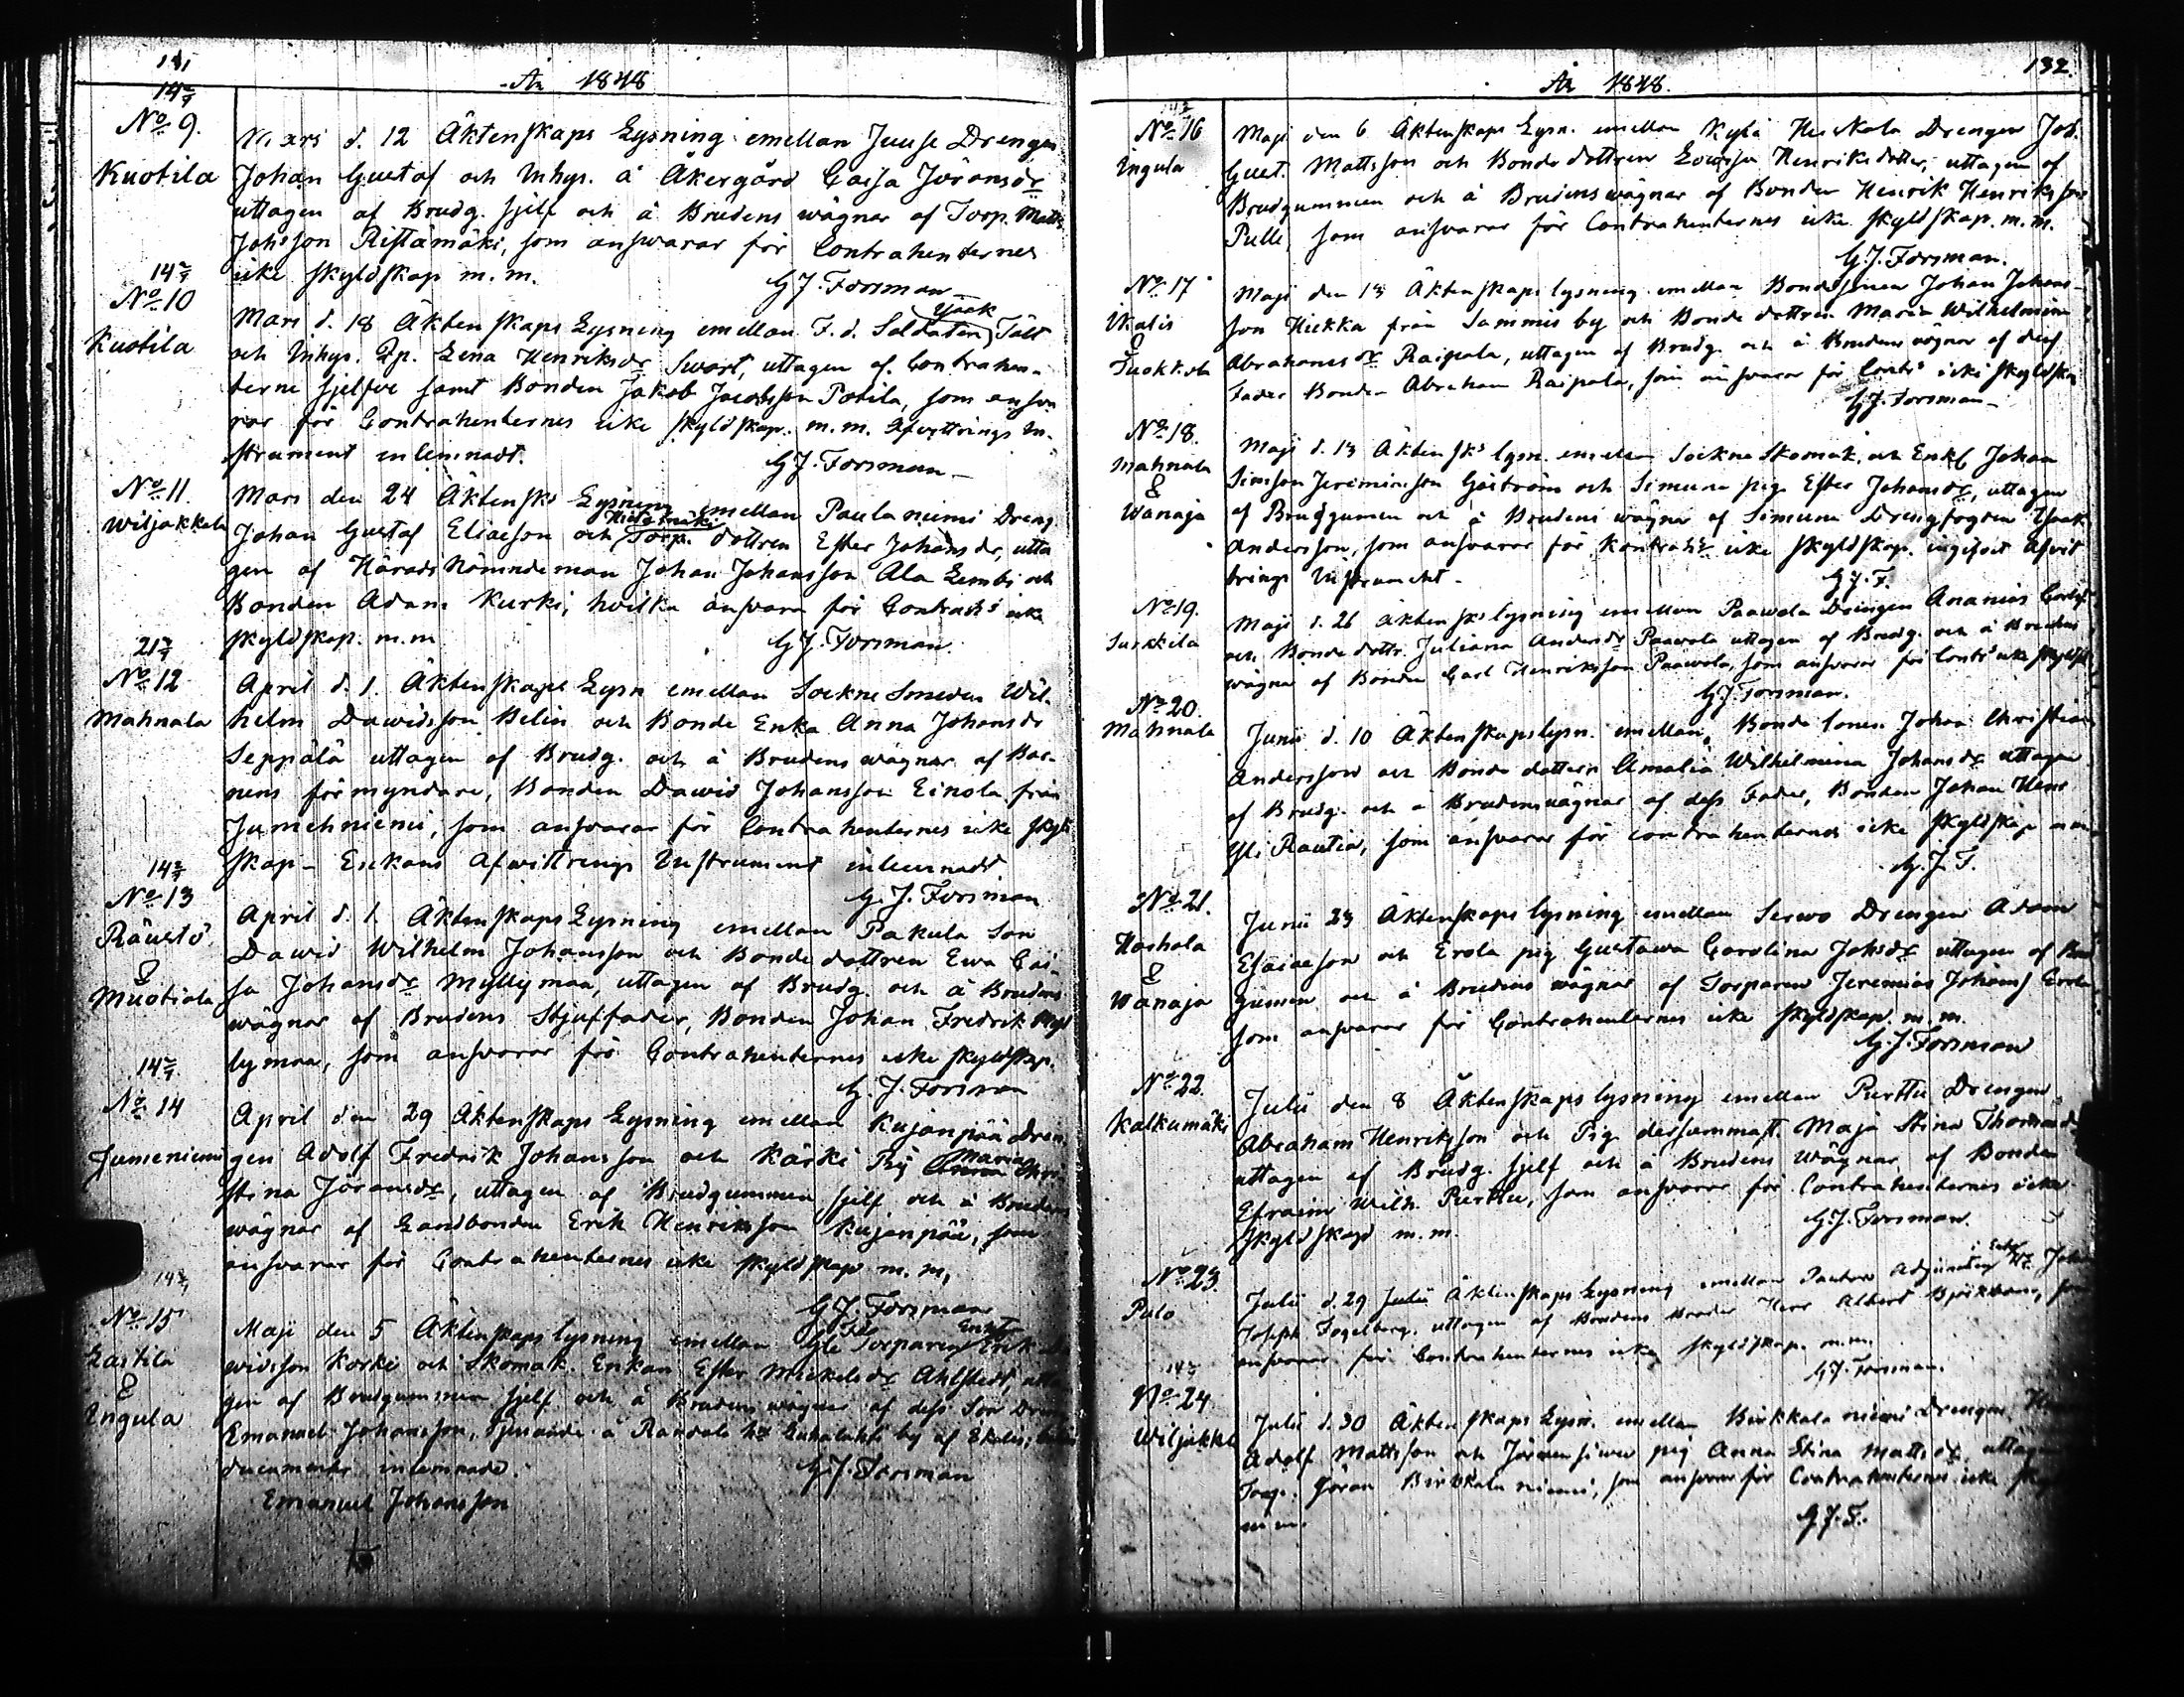 131
År 1848
14/7
No 9.
Kuotila
Mars d. 12 Äktenskaps Lysning emellan Juuse Drengen
Johan Gustaf och Inhys. å Åkergård Caisa Jöransdr
uttagen af Brudg. sjelf och å Brudens wägnar af Torp. Matts
Johsson Ristämäki, som answarar för Contrahenternes
icke skyldskap m. m.
G J. Forsman
14/7
No 10
Kuotila
Mars d. 18 Äktenskaps Lysning emellan F. d. Soldaten Isaak Tält
och Inhys. Qp. Lena Henriksdr Swart, uttagen af Contrahen-
terne sjelfve samt Bonden Jakob Jacobsson Potila, som answa
rar för Contrahenternes icke skyldskap. m. m. Afvittrings In-
strument inlemnadt.
G J. Forsman
No 11.
Wiljakkala
Mars den 24 Äktensks Lysning emellan Paulaniemi Dreng
Johan Gustaf Eliaeson och Torp. dottren Ester Johansdr, utta
gen af Härads Nämndeman Johan Johansson Ala Lembi och
Bonden Adam Kurki, hvilka answara för Contrahs icke
skyldskap. m. m
G J. Forsman.
21/7
No 12
Mahnala
April d. 1. Äktenskaps Lysn emellan Sockne Smeden Wil-
helm Dawidsson Helin och Bonde Enka Anna Johansdr
Seppälä uttagen af Brudg. och å Brudens wägnar af Bar-
nens förmyndare, Bonden Dawid Johansson Einola från
Jumehniemi, som answarar för Contrahenternes icke skyld
skap - Enkans Afwittrings Instrument inlemnadt
G. J. Forsman
14/7
No 13
Räustö
&
Muotiala
April d. 1. Äktenskaps Lysning emellan Pakula Son
Dawid Wilhelm Johansson och Bonde dottren Ewa Cai-
sa Johansdr Myllymaa, uttagen af Brudg. och å Brudens
wägnar af Brudens Stjuffader, Bonden Johan Fredrik Myl
lymaa, som answarar för Contrahenternes icke skyldskap.
G J. Forsman
14/7
No 14
Jumeniemi
April den 29 Äktenskaps Lysning emellan Kujanpää Dren
gen Adolf Fredrik Johansson och Kärki Pig Maria Chri
stina Jöransdr, uttagen af Brudgummen sjelf och å Brudens
wägnar af Landbonden Erik Henriksson Kujanpää, som
answarar för Contrahenternes icke skyldskap m. m,
G J. Forsman
No 15
Laitila
&
Ingula
Maji den 5 Äktenskaps lysning emellan Torparen Erik
widsson Korki och Skomak. Enkan Ester Mickelsdr Ahlstedt, utta
gen af Brudgummen sjelf och å Brudens wägnar af dess Son
Emanuel Johansson, tjenande å Randala by af
documenter inlemnade.
G J. Forsman
Emanuel Johansson
132.
År 1848.
No 16
Ingula
Maji den 6 Äktenskaps Lysn. emellan Kylä Heikkala Drengen Joh.
Gust. Mattsson och Bonde dottren Lowisa Henriksdotter, uttagen af
Brudgummen och å Brudens wägnar af Bonden Henrik Henriksson
Pulli, som answarar för Contrahenternes icke skyldskap. m. m.
G. J. Forsman.
No 17
Ikalis
&
Maji den 13 Äktenskaps lysning emellan Bondesonen Johan Johans-
son Hiekka från Sammis by och Bonde dottren Maria Wilhelmina
Abrahamsdr Raipala, uttagen af Brudg. och å Brudens wägnar af dess
Fader Bonden Abraham Raipala, som answarar för Contrs icke skyldskap
G J. Forsman
No 18.
Mahnala
&
Wanaja
Maji d. 13 Äktensks lysn. emellan Sockne Skomak. och Enkl Johan
Simson Jeremiasson Gåström och Simuna pig Ester Johansdr, uttagen
af Brudgumen och å Brudens wägnar af Simuna Drengfogden Isaak
Andersson, som answarar för Kontrahs icke skyldskap. ingifvit Afvit
trings Instrument.
G. J. F.
No 19.
Sarkkila
Maji d. 26 äktensks lysning emellan Paawola Drengen Ananias Carlsson
och Bonde dottr. Juliana Andersdr Paawola uttagen af Brudg. och å Brudens
wägnar af Bonden Carl Henriksson Paawola, som answarar för Contrs icke skyldsk
G J. Forsman.
No 20.
Mahnala
Junii d. 10 Äktenskapslysn. emellan Bonde Sonen Johan Christian
Andersson och Bonde dottren Amalia Wilhelmina Johansdr uttagen
af Brudg. och å Brudenswägnar af dess Fader, Bonden Johan Henr
Yli Rautia, som answarar för contrahenternes icke skyldskap m m
G. J. F.
No 21.
Hashala
&
Wanaja
Junii 23 Äktenskaps lysning emellan Serwo Drengen Adam
Esaiaeson och Erola pig Gustawa Carolina Johsdr uttagen af Brud
gumen och å Brudens wägnar af Torparen Jeremias Johans Erola
som answarar för Contrahenternes icke skyldskap m. m.
G. J. Forsman
No 22.
Kalkumäki
Julii den 8 Äktenskapslysning emellan Perttu Drengen
Abraham Henriksson och Pig. dersammast. Maja Stina Thomasdr
uttagen af Brudg. sjelf och å Brudens wägnar af Bonden
Efraim Wilh. Perttu, som answarar för Contrahenternes icke
skyldskap m. m.
G. J. Forsman.
No 23.
Pulo
Julii d. 29 Julii Äktenskaps Lysning emellan Pastors Adjuncten Johan
Joseph Fogelberg. uttagen af Brudens Broder Herr Albert Björkbom, som
answarar för Contrahenternes icke skyldskap. m. m.
G J. Forsman.
No 24
Wiljakkl
Julii d. 30 Äktenskaps Lysn. emellan Birkkala niemi Drengen
Adolf Mattsson och pig Anna Stina Mattsdr uttagen
Torp. Göran Birkkala niemi, som answarar för Contrahenternes icke skyl
m m.
G J. F.